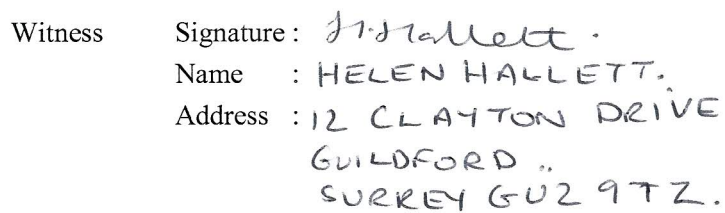 Witness Signature : H.Hallett.
Name : HELEN HALLETT.
Address : 12 CLAYTON DRIVE
GUILDFORD ..
SURREY GU2 9TZ.